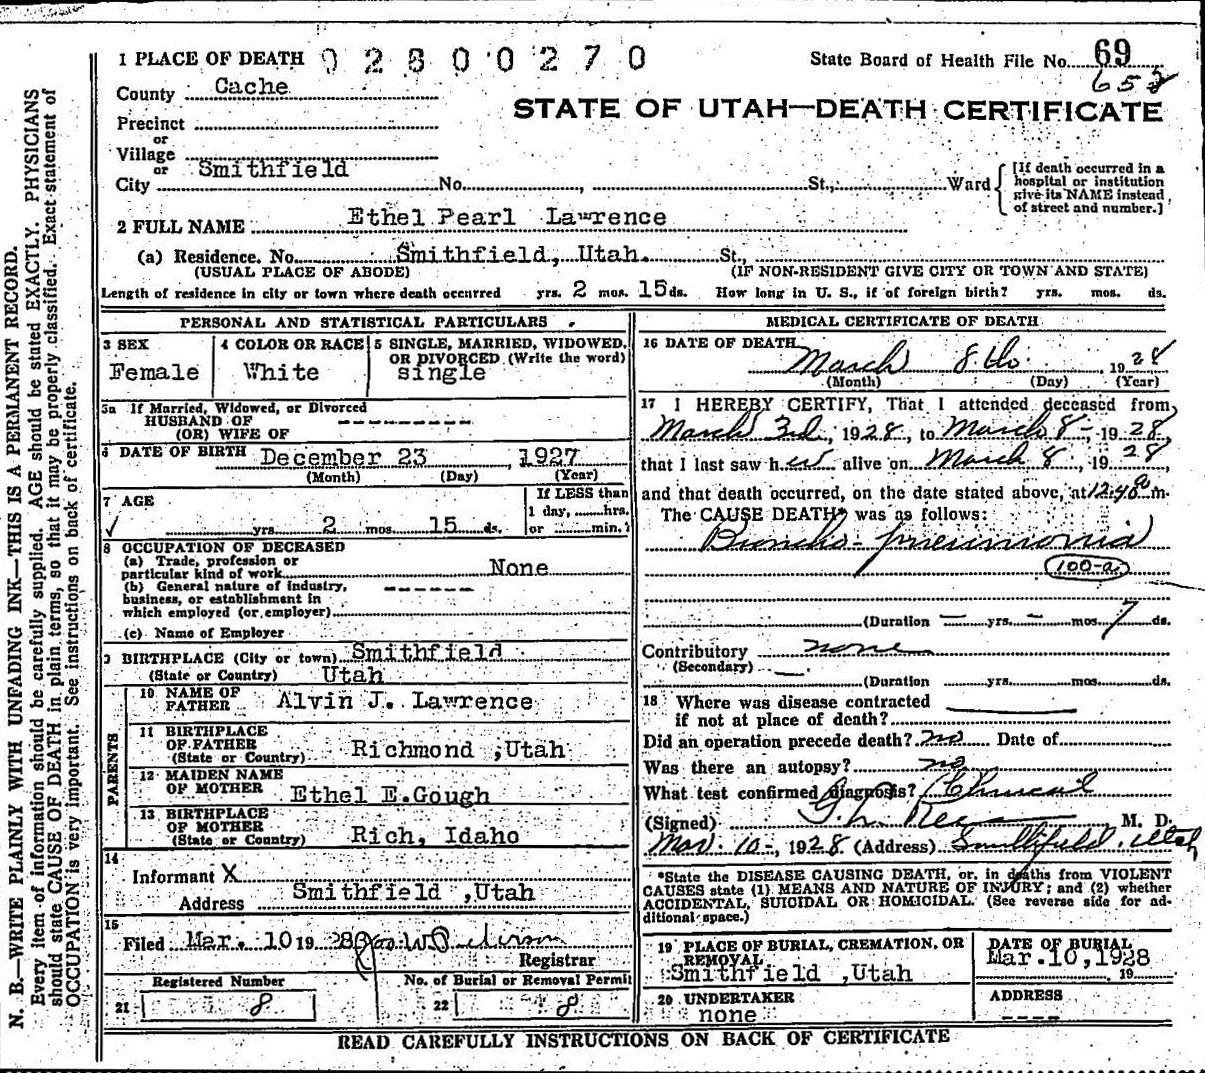 1 PLACE OF DEATH 0 2 8 0 0 2 7 0
State Board of Health File No. 69
652
County Cache
STATE OF UTAH—DEATH CERTIFICATE
Precinct
or
Village
or
City Smithfield No. , St., Ward
[If death occurred in a
hospital or institution
give its NAME instead
of street and number.]
2 FULL NAME Ethel Pearl Lawrence
(a) Residence. No. Smithfield, Utah. St.,
(USUAL PLACE OF ABODE) (IF NON-RESIDENT GIVE CITY OR TOWN AND STATE)
Length of residence in city or town where death occurred yrs. 2 mos. 15 ds. How long in U. S., if of foreign birth? yrs. mos. ds.
PERSONAL AND STATISTICAL PARTICULARS
3 SEX
Female
4 COLOR OR RACE
White
5 SINGLE, MARRIED, WIDOWED,
OR DIVORCED (Write the word)
single
5a If Married, Widowed, or Divorced
HUSBAND OF
(OR) WIFE OF
6 DATE OF BIRTH December 23, 1927
(Month) (Day) (Year)
7 AGE
yrs. 2 mos. 15 ds.
If LESS than
1 day, hrs.
or min.?
8 OCCUPATION OF DECEASED
(a) Trade, profession or
particular kind of work None
(b) General nature of industry,
business, or establishment in
which employed (or employer)
(c) Name of Employer
9 BIRTHPLACE (City or town) Smithfield
(State or Country) Utah
PARENTS
10 NAME OF
FATHER Alvin J. Lawrence
11 BIRTHPLACE
OF FATHER
(State or Country) Richmond ,Utah
12 MAIDEN NAME
OF MOTHER Ethel E.Gough
13 BIRTHPLACE
OF MOTHER
(State or Country) Rich, Idaho
14
Informant X
Address Smithfield ,Utah
15
Filed Mar. 10 1928
Registrar
Registered Number
21 8
No. of Burial or Removal Permit
22 8
MEDICAL CERTIFICATE OF DEATH
16 DATE OF DEATH
March 8th, 1928
(Month) (Day) (Year)
17 I HEREBY CERTIFY, That I attended deceased from
March 3rd, 1928, to March 8-, 1928,
that I last saw her alive on March 8, 1928,
and that death occurred, on the date stated above, at 12:40 m.
The CAUSE DEATH* was as follows:
Broncho-pneumonia
100-a
(Duration — yrs. — mos. 7 ds.
Contributory none
(Secondary)
(Duration yrs. mos. ds.
18 Where was disease contracted
if not at place of death?
Did an operation precede death? no Date of
Was there an autopsy? no
What test confirmed diagnosis? Clinical
(Signed) M. D.
Mar. 10-, 1928 (Address) Smithfield, Utah
*State the DISEASE CAUSING DEATH, or, in deaths from VIOLENT
CAUSES state (1) MEANS AND NATURE OF INJURY; and (2) whether
ACCIDENTAL, SUICIDAL OR HOMICIDAL. (See reverse side for ad-
ditional space.)
19 PLACE OF BURIAL, CREMATION, OR
REMOVAL
Smithfield ,Utah
DATE OF BURIAL
Mar.10,1928
19
20 UNDERTAKER
none
ADDRESS
----
READ CAREFULLY INSTRUCTIONS ON BACK OF CERTIFICATE
N. B.—WRITE PLAINLY WITH UNFADING INK—THIS IS A PERMANENT RECORD.
Every item of information should be carefully supplied. AGE should be stated EXACTLY. PHYSICIANS
should state CAUSE OF DEATH in plain terms, so that it may be properly classified. Exact statement of
OCCUPATION is very important. See instructions on back of certificate.